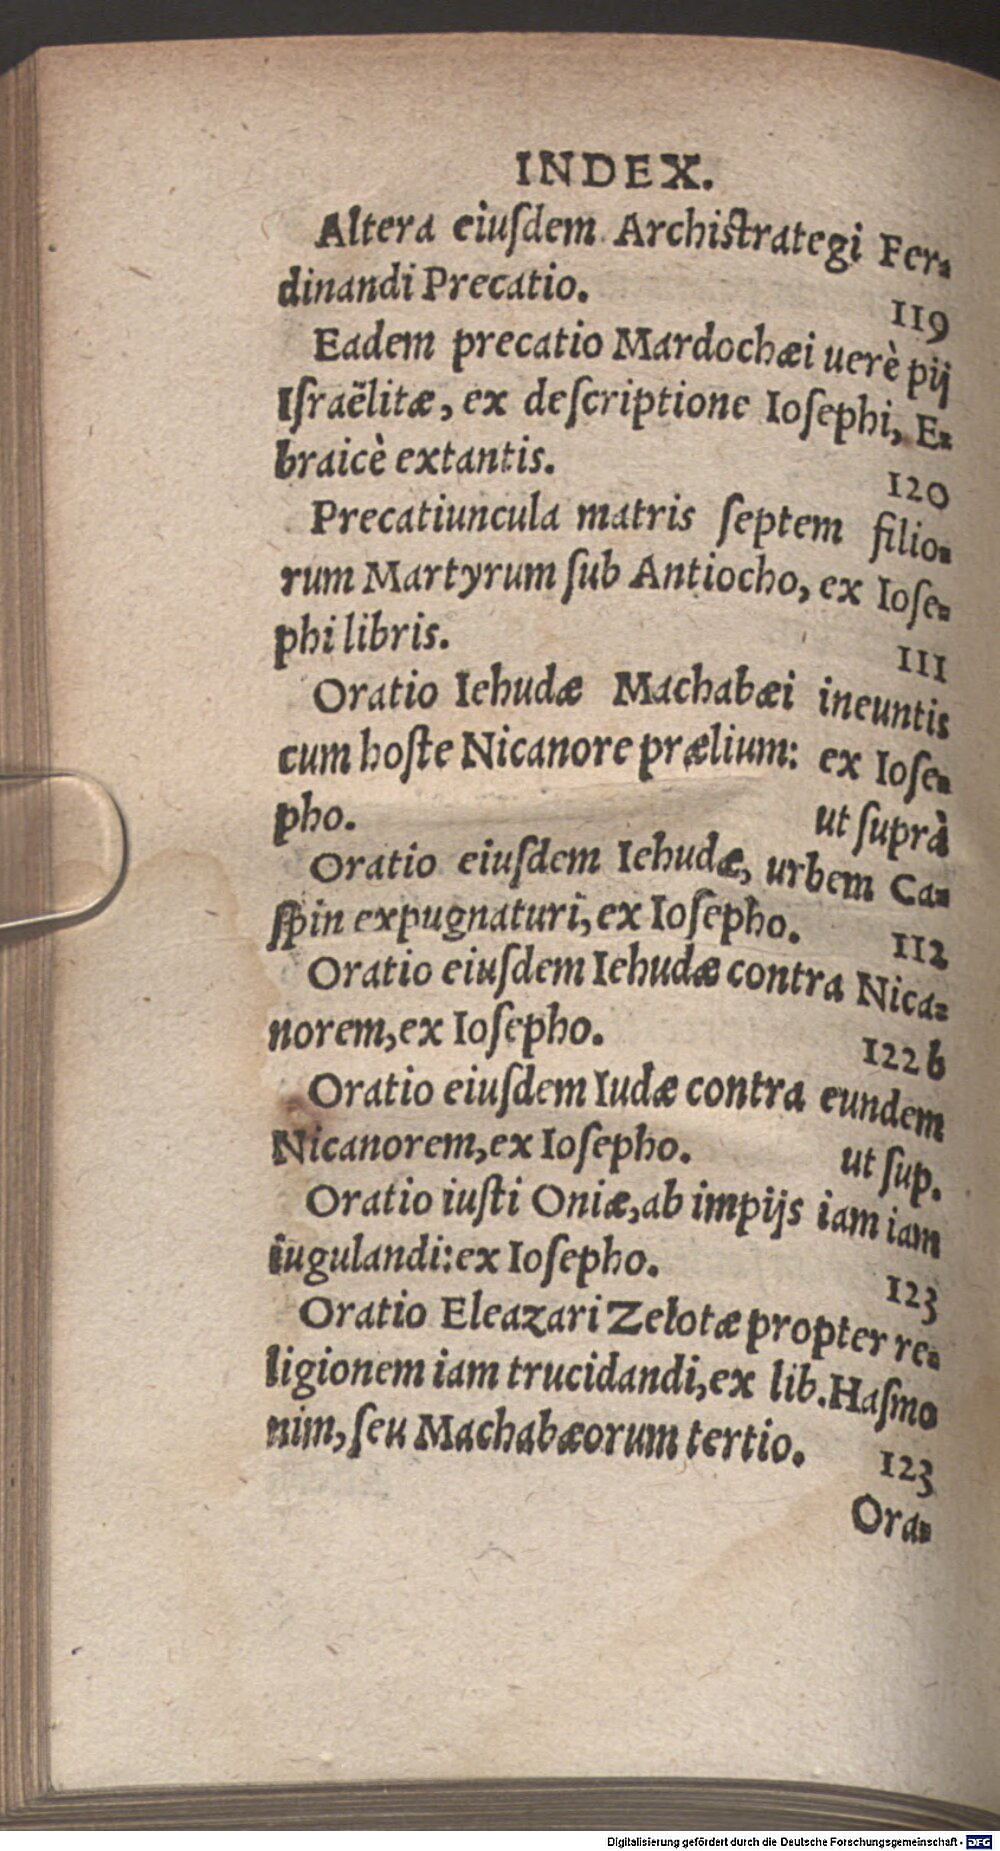 INDEX.
Altera eiuſdem Archiſtrategi Fer-
dinandi Precatio. 119
Eadem precatio Mardochæi uerè pij
Iſraëlitæ, ex deſcriptione Ioſephi, E-
braicè extantis. 120
Precatiuncula matris ſeptem filio-
rum Martyrum ſub Antiocho, ex Ioſe-
phi libris. 111
Oratio Iehudæ Machabæi ineuntis
cum hoſte Nicanore prælium: ex Ioſe-
pho. ut ſuprà
Oratio eiuſdem Iehudæ, urbem Ca-
ſpin expugnaturi, ex Ioſepho. 112
Oratio eiuſdem Iehudæ contra Nica-
norem, ex Ioſepho. 122b
Oratio eiuſdem Iudæ contra eundem
Nicanorem, ex Ioſepho. ut ſup.
Oratio iuſti Oniæ, ab impijs iam iam
iugulandi: ex Ioſepho. 123
Oratio Eleazari Zelotæ propter re-
ligionem iam trucidandi, ex lib. Haſmo
nim, ſeu Machabæorum tertio. 123
Ora-
Digitalisierung gefördert durch die Deutsche Forschungsgemeinschaft - DFG